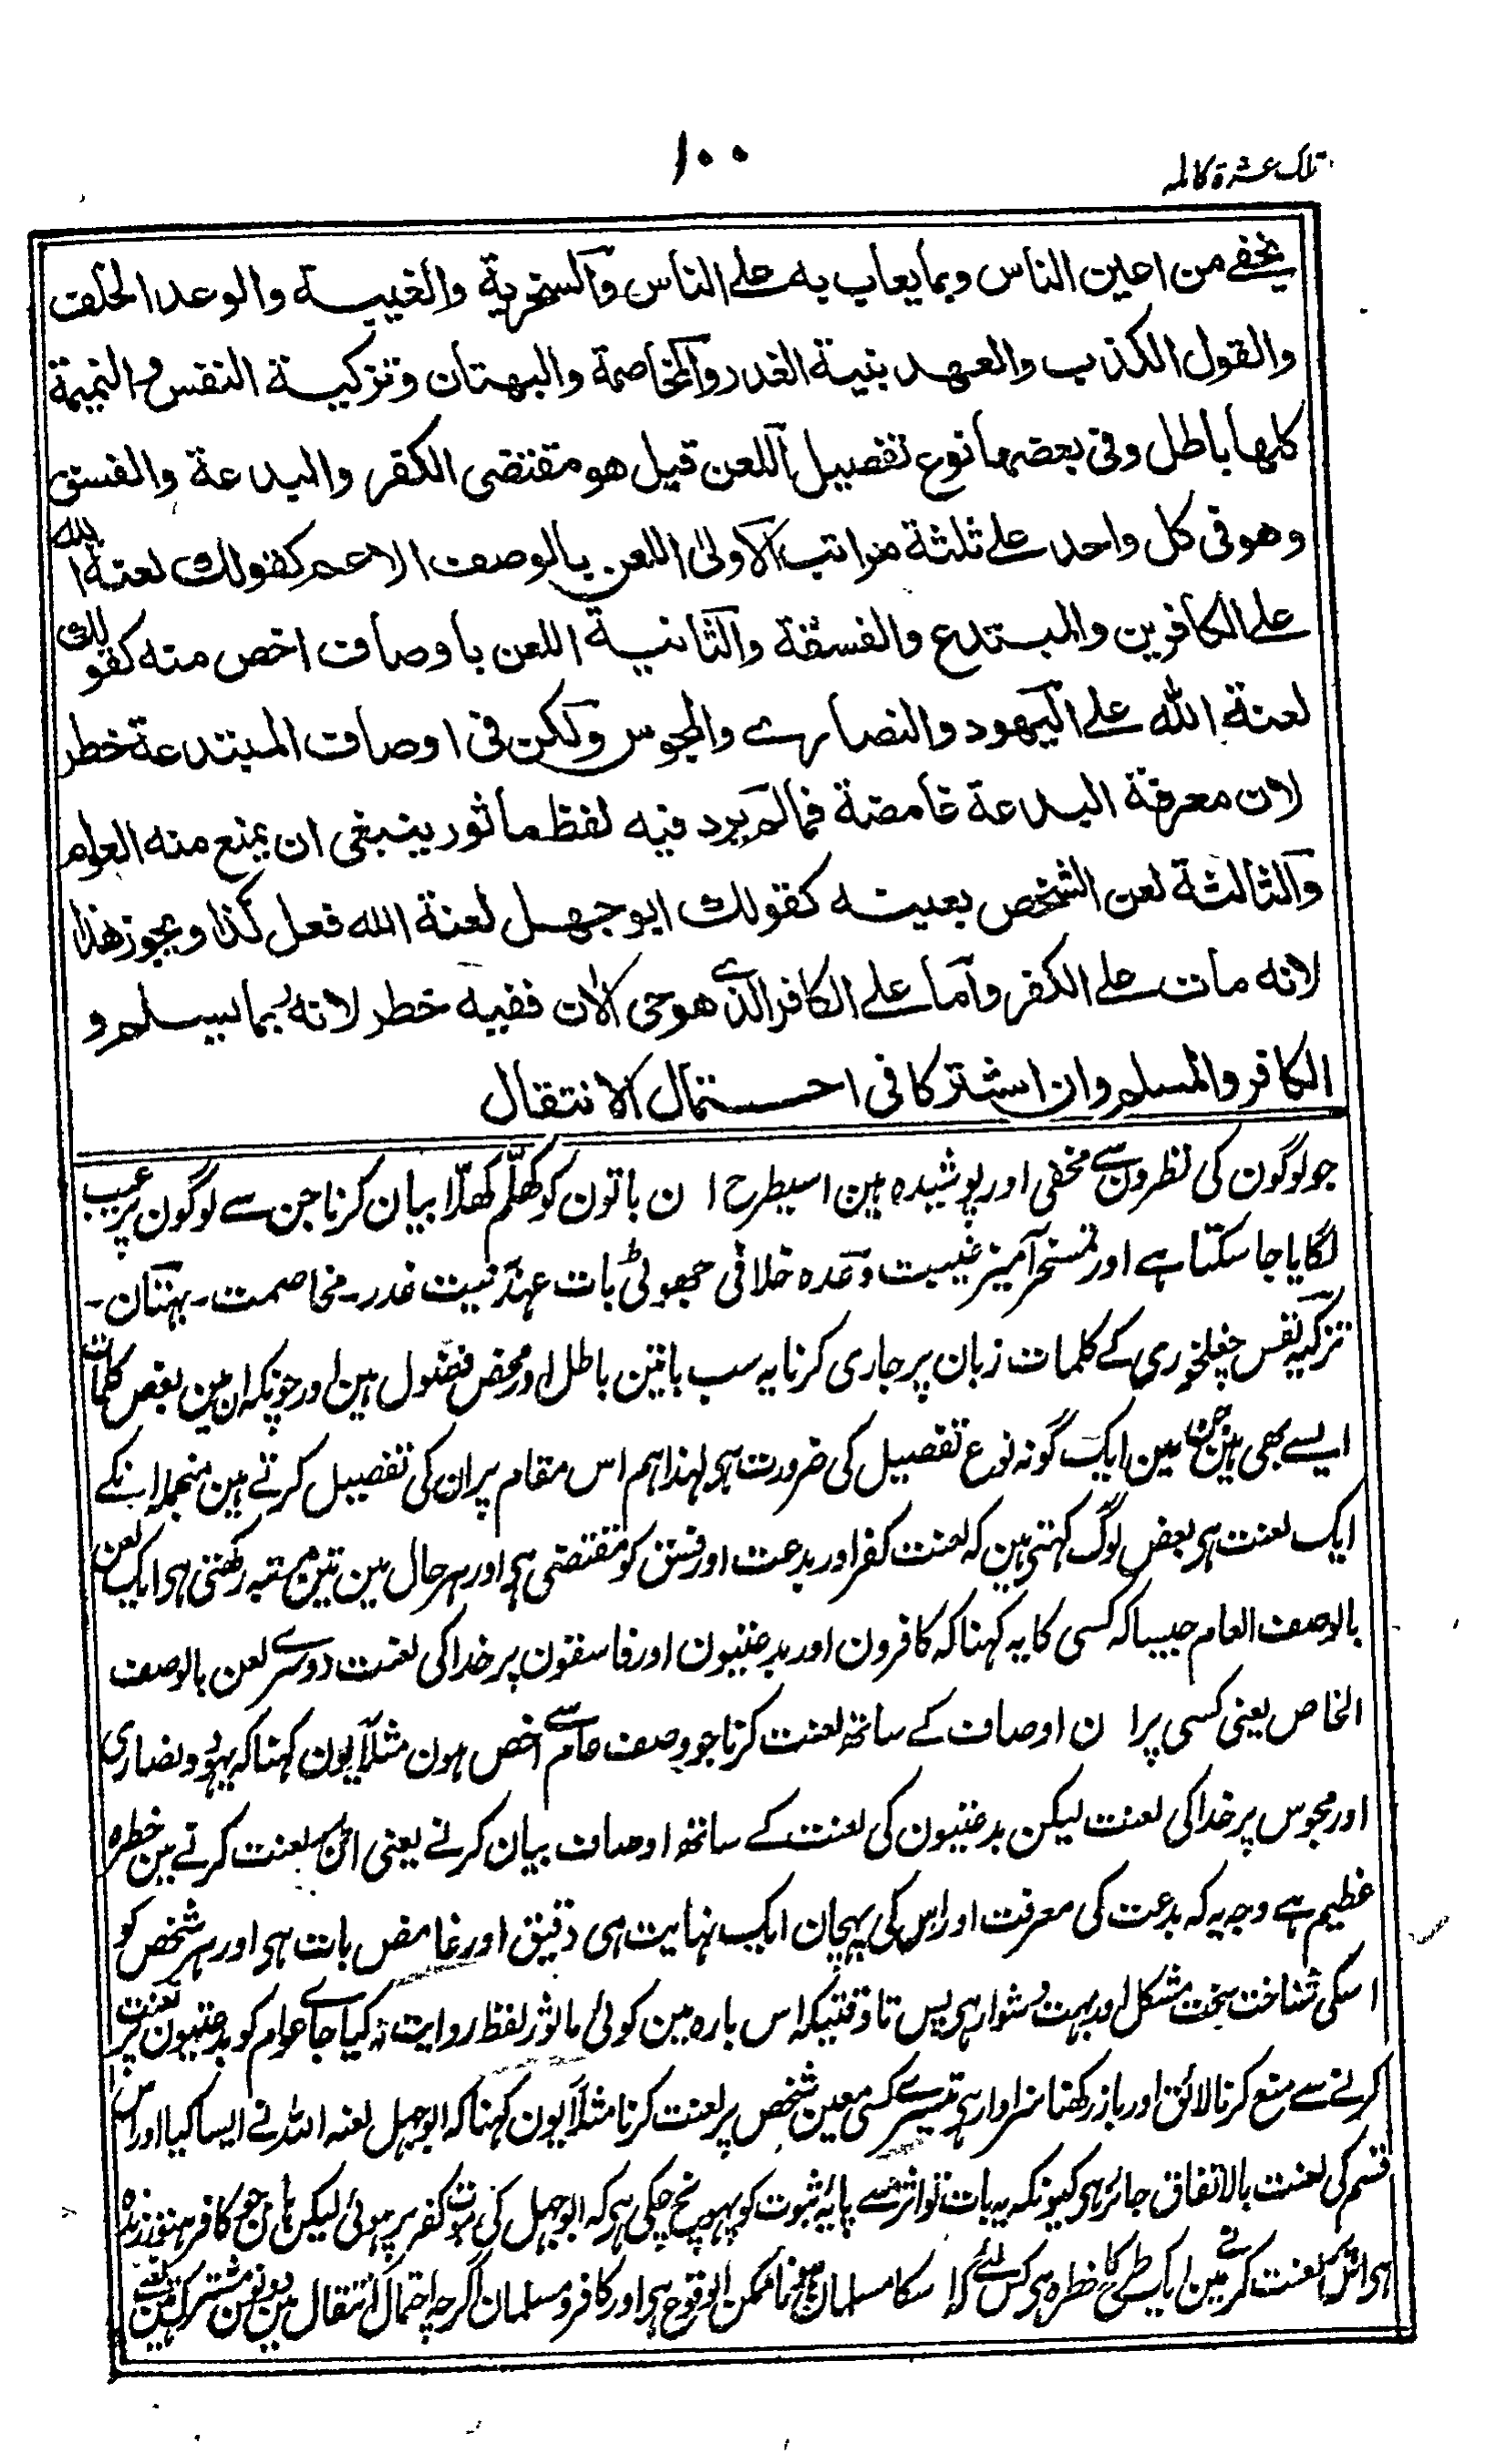 تلك عشرة كاملہ
١٠٠
يخفے من اعين الناس وبما يعاب به علے الناس والسخرية والغيبة والوعد الخلف
والقول الكذب والعهد بنية الغدر والمخاصمة والبهتان وتزكية النفس والنميمة
كلها باطل وفى بعضها نوع تفصيل اللعن قيل هو مقتضى الكفر والبدعة والفسق
وهو فى كل واحد علے ثلثة مراتب الاولىٰ اللعن بالوصف الاعم كقولك لعنة الله
علے الكافرين والمبتدع والفسقة والثانية اللعن باوصاف اخص منه كقولك
لعنة الله علے اليهود والنصارے والمجوس ولكن فى اوصاف المبتدعة خطر
لان معرفة البدعة غامضة فمالم يرد فيه لفظ ماثور ينبغى ان يمنع منه العوام
والثالثة لعن الشخص بعينه كقولك ابوجهل لعنة الله فعل كذا ويجوز هذا
لانه مات علے الكفر واما علے الكافر الذے هو حى الان ففيه خطر لانه ربما يسلم و
الكافر والمسلم وان اشتركا فى احتمال الانتقال
جو لوگون کی نظرون سے مخفی اور پوشیدہ ہین اسیطرح ان باتون کو کھلّم کھلّا بیان کرنا جن سے لوگون پر عیب
لگایا جا سکتا ہے اور تمسخر آمیز غیبت وعدہ خلافی جھوٹی بات عہد بنیت غدر۔ مخاصمت۔ بہتان۔
تزکیہ نفس چغلخوری کے کلمات زبان پر جاری کرنا یہ سب باتین باطل اور محض فضول ہین اور چونکہ ان مین بعض کلمات
ایسے بھی ہین جن مین ایک گونہ نوع تفصیل کی ضرورت ہے لہذا ہم اس مقام پر ان کی تفصیل کرتے ہین منجملہ انکے
ایک لعنت ہی بعض لوگ کہتی ہین کہ لعنت کفر اور بدعت اور فسق کو مقتضی ہے اور ہر حال مین تین مرتبہ رکھتی ہی ایک لعن
بالوصف العام جیسا کہ کسی کا یہ کہنا کہ کافرون اور بدعتیون اور فاسقون پر خدا کی لعنت دوسرے لعن بالوصف
الخاص یعنی کسی پر ان اوصاف کے ساتھ لعنت کرنا جو وصف عام سے اخص ہون مثلاً یون کہنا کہ یہود ونصاری
اور مجوس پر خدا کی لعنت لیکن بدعتیون کی لعنت کے ساتھ اوصاف بیان کرنے یعنی ان پر لعنت کرنے مین خطرہ
عظیم ہے وجہ یہ کہ بدعت کی معرفت اور اس کی پہچان ایک نہایت ہی دقیق اور غامض بات ہی اور ہر شخص کو
اسکی شناخت سخت مشکل اور بہت دشوار ہی پس تاوقتیکہ اس بارہ مین کوئی ماثور لفظ روایت نہ کیا جاے عوام کو بدعتیون پر لعنت
کرنے سے منع کرنا لائق اور باز رکھنا سزاوار ہے تیسرے کسی معین شخص پر لعنت کرنا مثلاً یون کہنا کہ ابوجہل لعنہ اللہ نے ایسا کیا اور اس
قسم کی لعنت بالاتفاق جائز ہی کیونکہ یہ بات تواتر سے پایۂ ثبوت کو پہونچ چکی ہے کہ ابوجہل کی موت کفر پر ہوئی لیکن ہان جو کافر ہنوز زندہ
ہی اس پر لعنت کرنے مین ایک طرح کا خطرہ ہی کس لئے کہ اسکا مسلمان ہونا ممکن الوقوع ہی اور کافر ومسلمان اگرچہ احتمال انتقال مین دونون مشترک ہین